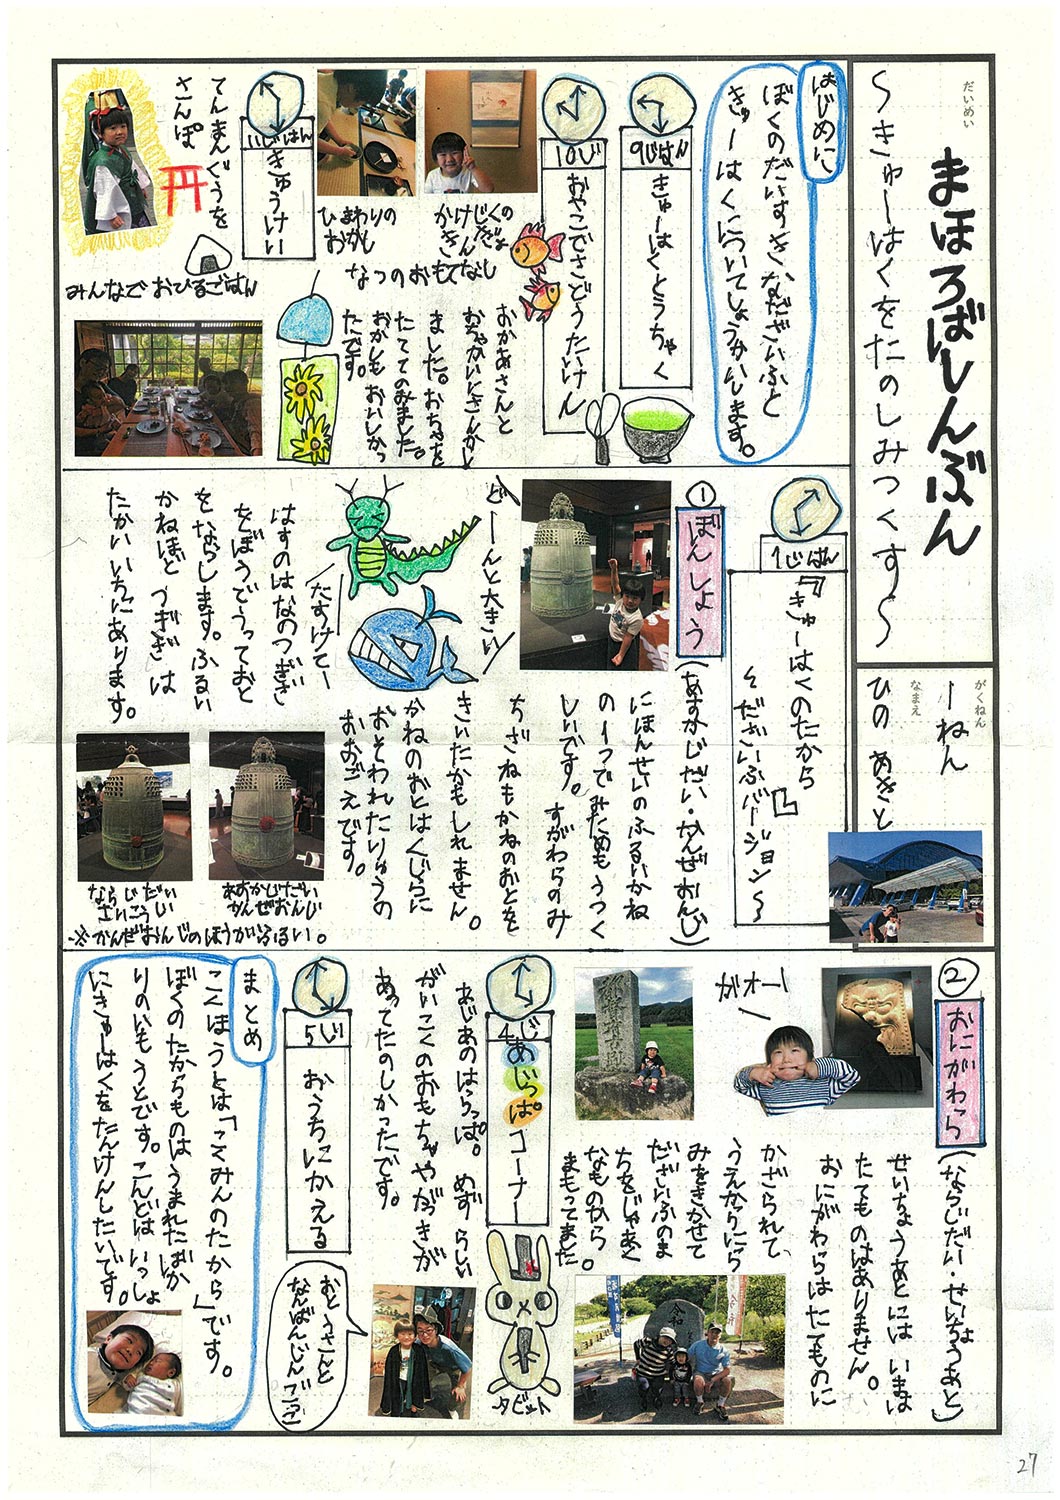 だいめい
まほろばしんぶん
〜きゅーはくをたのしみつくす〜
がくねん
一ねん
なまえ
ひの あきと
はじめに
ぼくのだいすきなだざいふと
きゅーはくについてしょうかいします。
9じはん
きゅーはくとうちゃく
10じ
おやこでさどうたいけん
かけじくの
きんぎょ
ひまわりの
おかし
なつのおもてなし
おかあさんと
おちゃかいにさんかし
ました。おちゃを
たててのみました。
おかしも おいしかっ
たです。
11じはん
きゅうけい
てんまんぐうを
さんぽ
みんなで おひるごはん
1じはん
『きゅーはくのたから
〜だざいふバージョン〜』
①
ぼんしょう
(あすかじだい・かんぜおんじ)
にほんせいのふるいかね
の一つでみためもうつく
しいです。すがわらのみ
ちざねもかねのおとを
きいたかもしれません。
かねのおとはくじらに
おそわれたりゅうの
おおごえです。
どーんと大きい
たすけてー
はすのはなのつぎざ
をぼうでうっておと
をならします。ふるい
かねほど つぎざ は
たかいいちにあります。
あすかじだい
かんぜおんじ
ならじだい
さいこうじ
※かんぜおんじのほうがふるい。
②
おにがわら
(ならじだい・せいちょうあと)
せいちょうあとには いまは
たてものはありません。
おにがわらはたてものに
かざられて、
うえからにら
みをきかせて
だざいふのま
ちをじゃあく
なものから
まもってました。
がオー
都督府古趾
令和
4じ
あじっぱコーナー
あじあのはらっぱ。めずらしい
がいこくのおもちゃやがっきが
あってたのしかったです。
タビット
おとうさんと
なんばんじんごっこ
5じ
おうちにかえる
まとめ
こくほうとは「こくみんのたから」です。
ぼくのたからものは うまれたばか
りのいもうとです。こんどはいっしょ
にきゅーはくをたんけんしたいです。
27